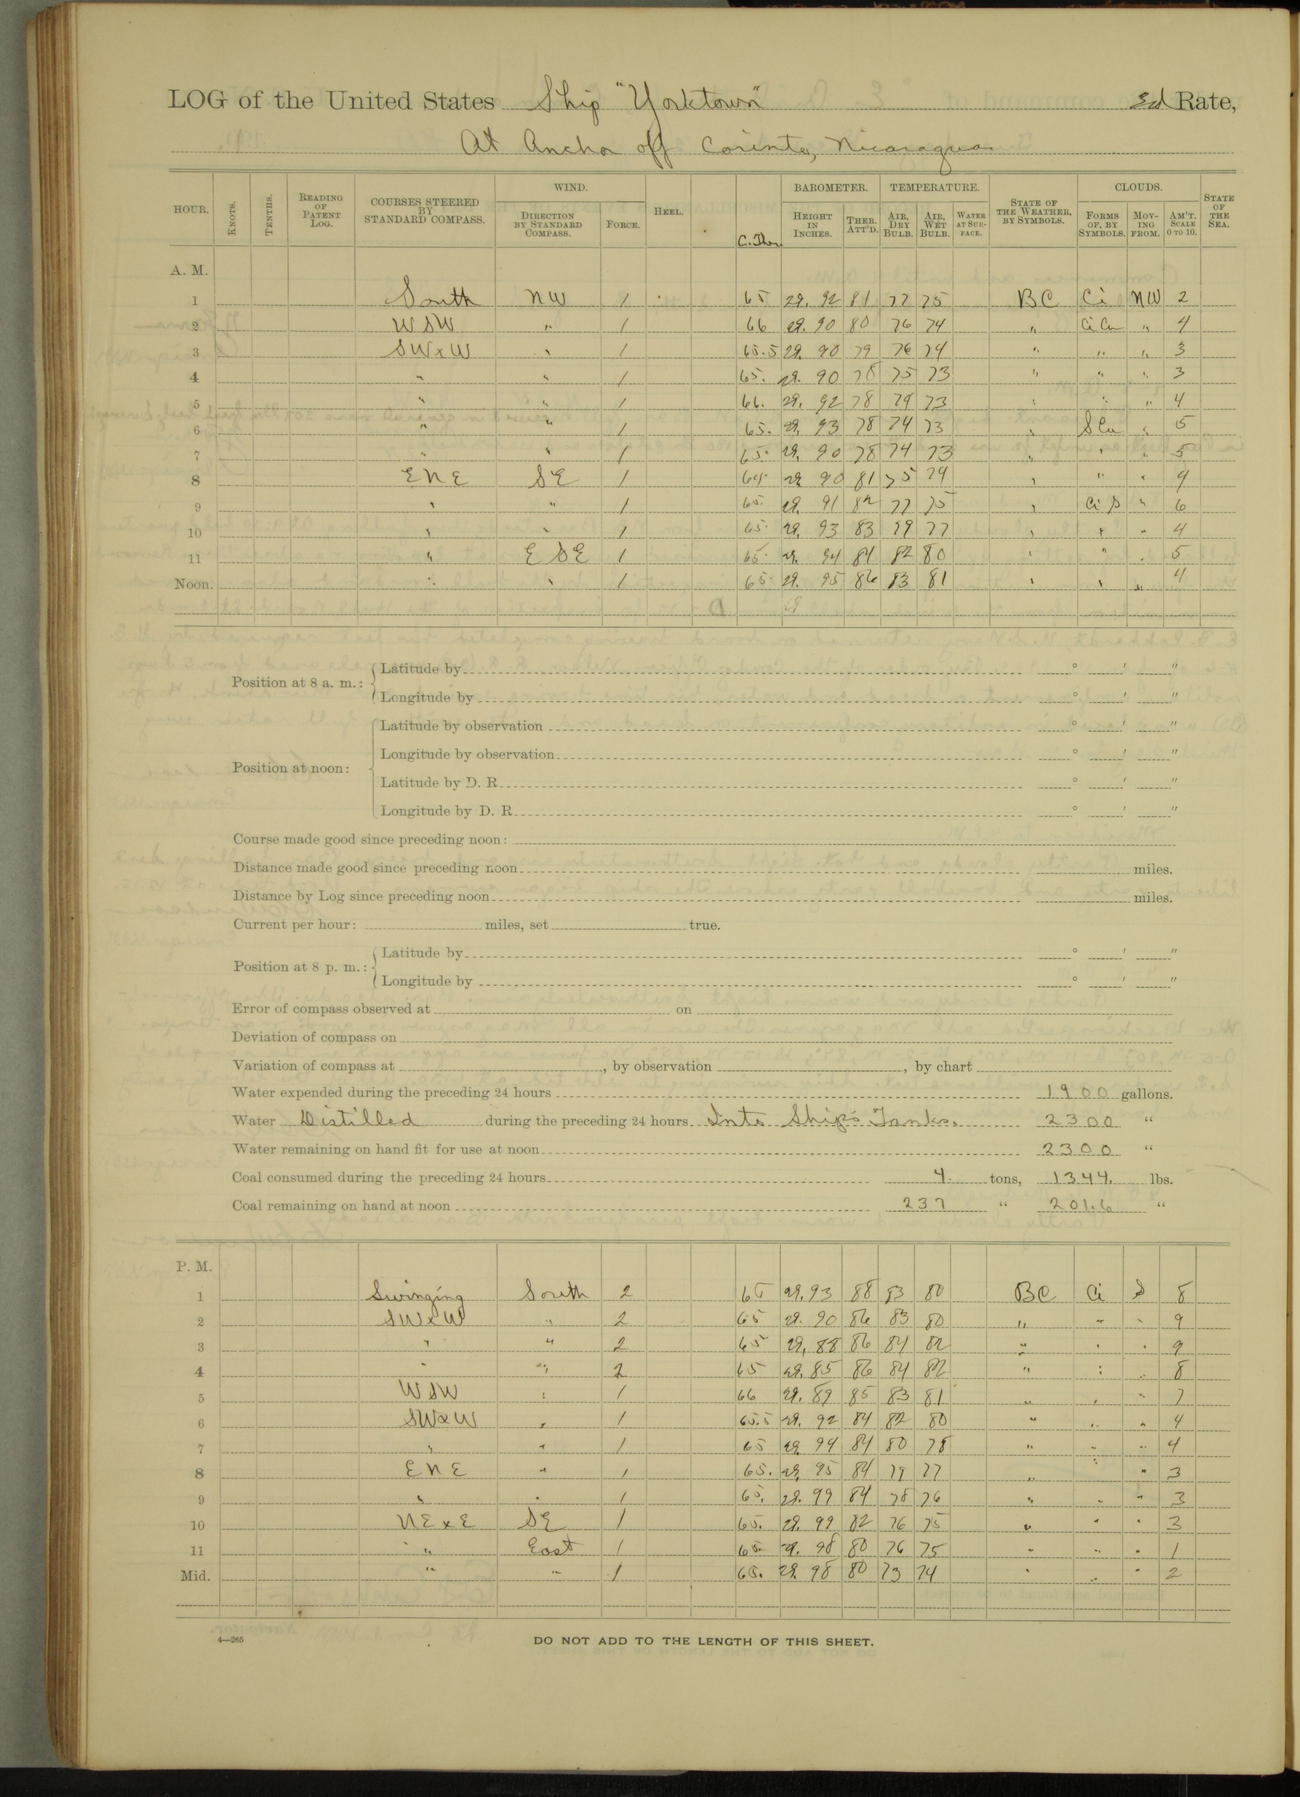 LOG of the United States Ship "Yorktown" 3d Rate,
At Anchor off Corinto, Nicaragua
HOUR. KNOTS. TENTHS. READING OF PATENT LOG. COURSES STEERED BY STANDARD COMPASS. WIND. DIRECTION BY STANDARD COMPASS. FORCE. HEEL. C. Ther. BAROMETER. HEIGHT IN INCHES. THER. ATT'D. TEMPERATURE. AIR, DRY BULB. AIR, WET BULB. WATER AT SURFACE. STATE OF THE WEATHER, BY SYMBOLS. CLOUDS. FORMS OF, BY SYMBOLS. MOVING FROM. AM'T. SCALE 0 TO 10. STATE OF THE SEA.
A. M.
1 South NW 1 65 29.92 81 77 75 BC Ci NW 2
2 WSW " 1 66 29.90 80 76 74 " CiCu " 4
3 SWxW " 1 65.5 29.90 79 76 74 " " " 3
4 " " 1 65. 29.90 78 75 73 " " " 3
5 " " 1 66. 29.92 78 74 73 " " " 4
6 " " 1 65. 29.93 78 74 73 " SCu " 5
7 " " 1 65. 29.90 78 74 73 " " " 5
8 ENE SE 1 29.90 81 75 74 " " " 4
9 " " 1 65. 29.91 82 77 75 " CiS " 6
10 " " 1 65. 29.93 83 79 77 " " " 4
11 " ESE 1 65. 29.94 84 82 80 " " " 5
Noon. " " 1 65. 29.95 86 83 81 " " " 4
Position at 8 a. m.: Latitude by ° ' "
Longitude by ° ' "
Position at noon: Latitude by observation ° ' "
Longitude by observation ° ' "
Latitude by D. R. ° ' "
Longitude by D. R. ° ' "
Course made good since preceding noon:
Distance made good since preceding noon miles.
Distance by Log since preceding noon miles.
Current per hour: miles, set true.
Position at 8 p. m.: Latitude by ° ' "
Longitude by ° ' "
Error of compass observed at on
Deviation of compass on
Variation of compass at , by observation , by chart
Water expended during the preceding 24 hours 1900 gallons.
Water Distilled during the preceding 24 hours Into Ship's Tanks. 2300 "
Water remaining on hand fit for use at noon 2300 "
Coal consumed during the preceding 24 hours 4. tons, 1344. lbs.
Coal remaining on hand at noon 237 " 2016 "
P. M.
1 Swinging South 2 65 29.93 88 83 80 BC Ci S 8
2 SWxW " 2 65 29.90 86 83 80 " " " 9
3 " " 2 65 29.88 86 84 82 " " " 9
4 " " 2 65 29.85 86 84 82 " " " 8
5 WSW " 1 66 29.89 85 83 81 " " " 7
6 SWxW " 1 65.5 29.92 84 82 80 " " " 4
7 " " 1 65 29.94 84 80 78 " " " 4
8 ENE " 1 65. 29.95 84 79 77 " " " 3
9 " " 1 65. 29.99 84 78 76 " " " 3
10 NExE SE 1 65. 29.99 82 76 75 " " " 3
11 " East 1 65. 29.98 80 76 75 " " " 1
Mid. " " 1 65. 29.98 80 74 " " " 2
4—265
DO NOT ADD TO THE LENGTH OF THIS SHEET.